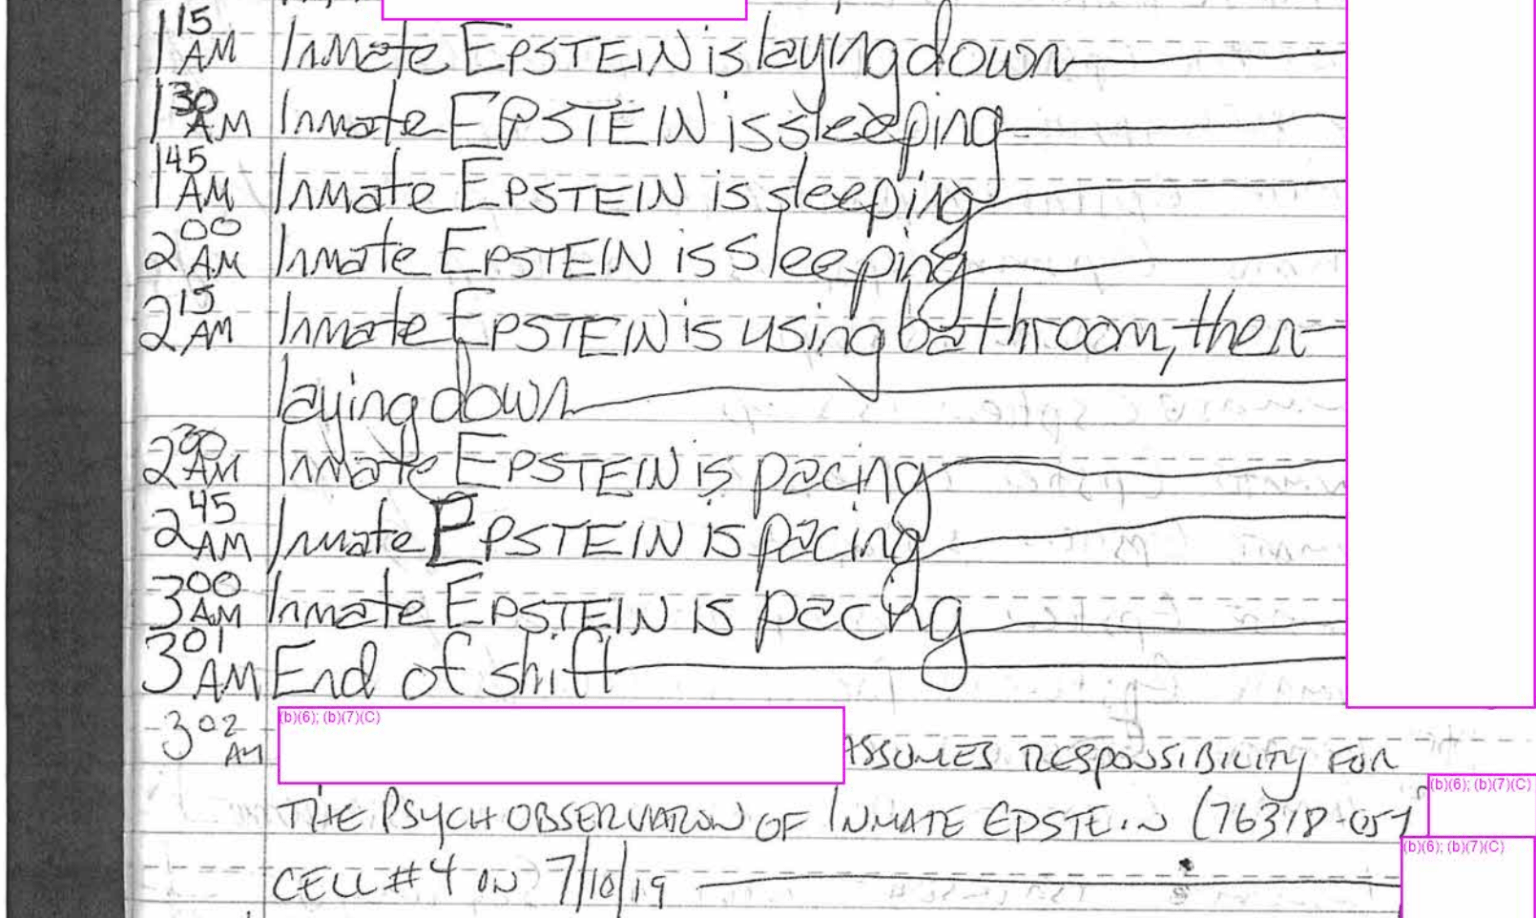 1 15 AM Inmate EPSTEIN is laying down
1 30 AM Inmate EPSTEIN is sleeping
1 45 AM Inmate EPSTEIN is sleeping
2 00 AM Inmate EPSTEIN is sleeping
2 15 AM Inmate EPSTEIN is using bathroom, then
laying down
2 30 AM Inmate EPSTEIN is pacing
2 45 AM Inmate EPSTEIN is pacing
3 00 AM Inmate EPSTEIN is pacing
3 01 AM End of shift
(b)(6); (b)(7)(C)
3 02 AM ASSUMES RESPONSIBILITY FOR
(b)(6); (b)(7)(C)
THE PSYCH OBSERVATION OF INMATE EPSTEIN (76318-054
(b)(6); (b)(7)(C)
CELL #4 ON 7/10/19